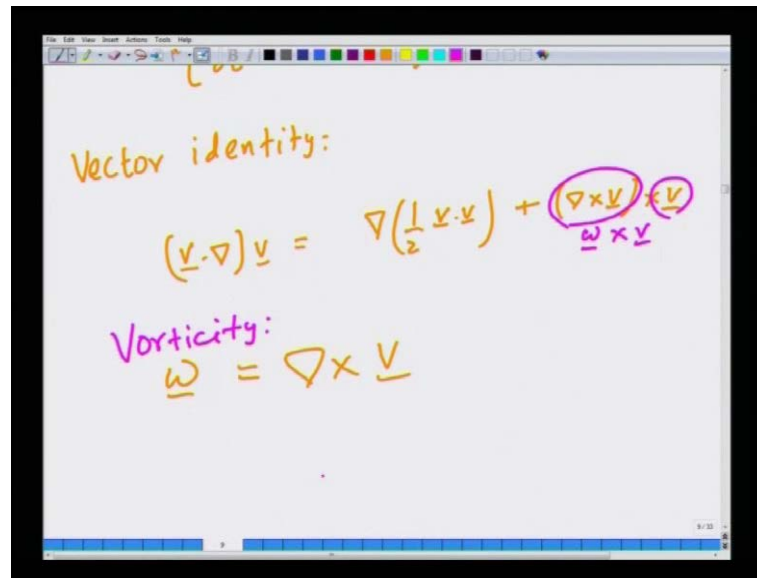 File Edit View Insert Actions Tools Help
Vector identity:
(v·∇)v = ∇(1/2 v·v) + (∇×v)×v
ω×v
Vorticity:
ω = ∇×v
9/33
9